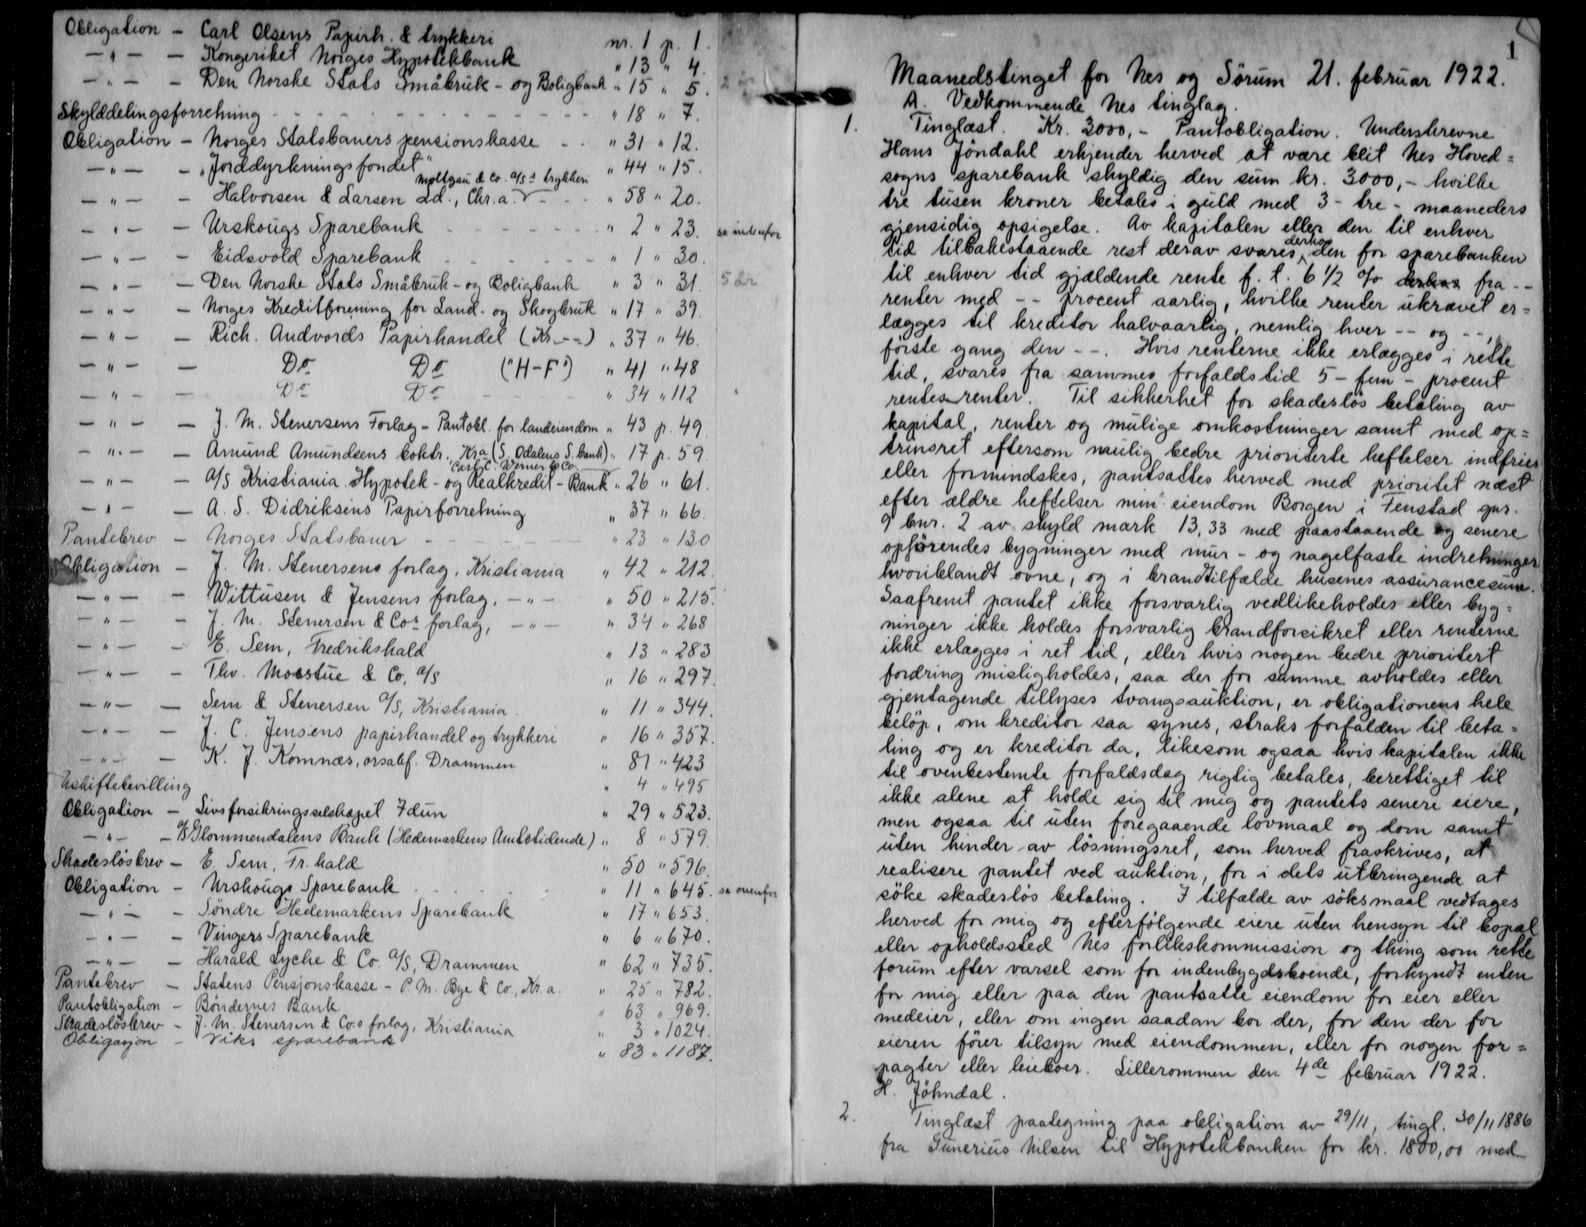 Obligation – Carl Olsens Papirh. & trykkeri nr. 1 p. 1.
– " – – Kongeriket Norges Hypotekbank " 13 " 4.
– " – – Den Norske Stats Småbruk- og Boligbank " 15 " 5.
Skylddelingsforretning " 18 " 7.
Obligation – Norges Statsbaners pensionskasse " 31 " 12.
– " – – "Jorddyrkningsfondet" " 44 " 15.
– " – – Halvorsen & Larsen Ld., Chr.a. " 58 " 20.
– " – – Urskougs Sparebank " 2 " 23. se nedenfor
– " – – Eidsvold Sparebank " 1 " 30.
– " – – Den Norske Stats Småbruk- og Boligbank " 3 " 31. 5 år
– " – – Norges Kreditforening for Land- og Skogbruk " 17 " 39.
– " – – Rich. Andvords Papirhandel (Kr. – –) " 37 " 46.
– " – Do Do ("H-F") " 41 " 48
– " – Do Do " 34 " 112
– " – – J. M. Stenersens Forlag – Pantobl. for landeiendom " 43 p. 49.
– " – – Amund Amundsens boktr. Kra (S. Odalens S.bank) " 17 p. 59.
Carl C. Werner & Co.
– " – – A/S Kristiania Hypotek- og Realkredit-Bank " 26 " 61.
– " – – A. S. Didriksens Papirforretning " 37 " 66.
Pantebrev – Norges Statsbaner " 23 " 130
Obligation – J. M. Stenersens forlag, Kristiania " 42 " 212.
– " – – Wittusen & Jensens forlag, – " – " 50 " 215.
– " – – J. M. Stenersen & Cos forlag, – " – " 34 " 268
– " – – E. Sem, Fredrikshald " 13 " 283
– " – – Thv. Moestue & Co, A/S " 16 " 297.
– " – – Sem & Stenersen A/S, Kristiania. " 11 " 344.
– " – – J. C. Jensens papirhandel og trykkeri " 16 " 357.
– " – – K. J. Komnæs, Drammen " 81 " 423
Uskiftebevilling " 4 " 495
Obligation – Livsforsikringsselskapet Idun " 29 " 523.
– " – – A/S Glommendalens Bank (Hedemarkens Amtstidende) " 8 " 579.
Skadesløsbrev – E. Sem, Fr.hald " 50 " 596.
Obligation – Urskougs Sparebank " 11 " 645. se ovenfor
– " – – Søndre Hedemarkens Sparebank " 17 " 653.
– " – – Vingers Sparebank " 6 " 670.
– " – – Harald Lyche & Co. A/S, Drammen " 62 " 735.
Pantebrev – Statens Pensjonskasse – P. M. Bye & Co., Kr.a. " 25 " 782.
Pantobligation – Bøndernes Bank " 63 " 969.
Skadesløsbrev – J. M. Stenersen & Co.s forlag, Kristiania " 3 " 1024.
Obligasjon – Viks sparebank " 83 " 1187.
1
Maanedstinget for Nes og Sørum 21. februar 1922.
A. Vedkommende Nes tinglag.
1. Tinglæst. Kr. 3000,- Pantobligation. Underskrevne
Hans Jöndahl erkjender herved at være blit Nes Hoved=
sogns sparebank skyldig den sum kr. 3000,- hvilke
tre tusen kroner betales i guld med 3 - tre - maaneders
gjensidig opsigelse. Av kapitalen eller den til enhver
tid tilbakestaaende rest derav svares derhos den for sparebanken
til enhver tid gjældende rente f. t. 6 1/2 % derhos fra --
renter med -- procent aarlig, hvilke renter ukrævet er=
lægges til kreditor halvaarlig, nemlig hver -- og --,
første gang den --. Hvis renterne ikke erlægges i rette
tid, svares fra sammes forfaldstid 5 - fem - procent
rentesrenter. Til sikkerhet for skadesløs betaling av
kapital, renter og mulige omkostninger samt med op=
trinsret eftersom mulig bedre prioriterte heftelser indfries
eller formindskes, pantsattes herved med prioritet næst
efter ældre heftelser min eiendom Borgen i Fenstad gnr.
9 bnr. 2 av skyld mark 13,33 med paastaaende og senere
opførendes bygninger med mur- og nagelfaste indretninger
hvoriblandt ovne, og i brandtilfælde husenes assurancesum.
Saafremt pantet ikke forsvarlig vedlikeholdes eller byg=
ninger ikke holdes forsvarlig brandforsikret eller renterne
ikke erlægges i ret tid, eller hvis nogen bedre prioritert
fordring misligholdes, saa der for samme avholdes eller
gjentagende tillyses tvangsauktion, er obligationens hele
beløp, om kreditor saa synes, straks forfalden til beta=
ling og er kreditor da, likesom ogsaa hvis kapitalen ikke
til ovenbestemte forfaldsdag rigtig betales, berettiget til
ikke alene at holde sig til mig og pantets senere eiere,
men ogsaa til uten foregaaende lovmaal og dom samt
uten hinder av løsningsret, som herved fraskrives, at
realisere pantet ved auktion, for i dets utbringende at
søke skadesløs betaling. I tilfælde av søksmaal vedtages
herved for mig og efterfølgende eiere uten hensyn til bopæl
eller opholdssted Nes forlikskommission og thing som rette
forum efter varsel som for indenbygdsboende, forkyndt enten
for mig eller paa den pantsatte eiendom for eier eller
medeier, eller om ingen saadan bor der, for den der for
eieren fører tilsyn med eiendommen, eller for nogen for=
pagter eller leieboer. Lillerommen den 4de februar 1922.
H. Jöhndal.
2. Tinglæst paategning paa obligation av 29/11, tingl. 30/11 1886
fra Gunerius Nilsen til Hypotekbanken for kr. 1800,00 med